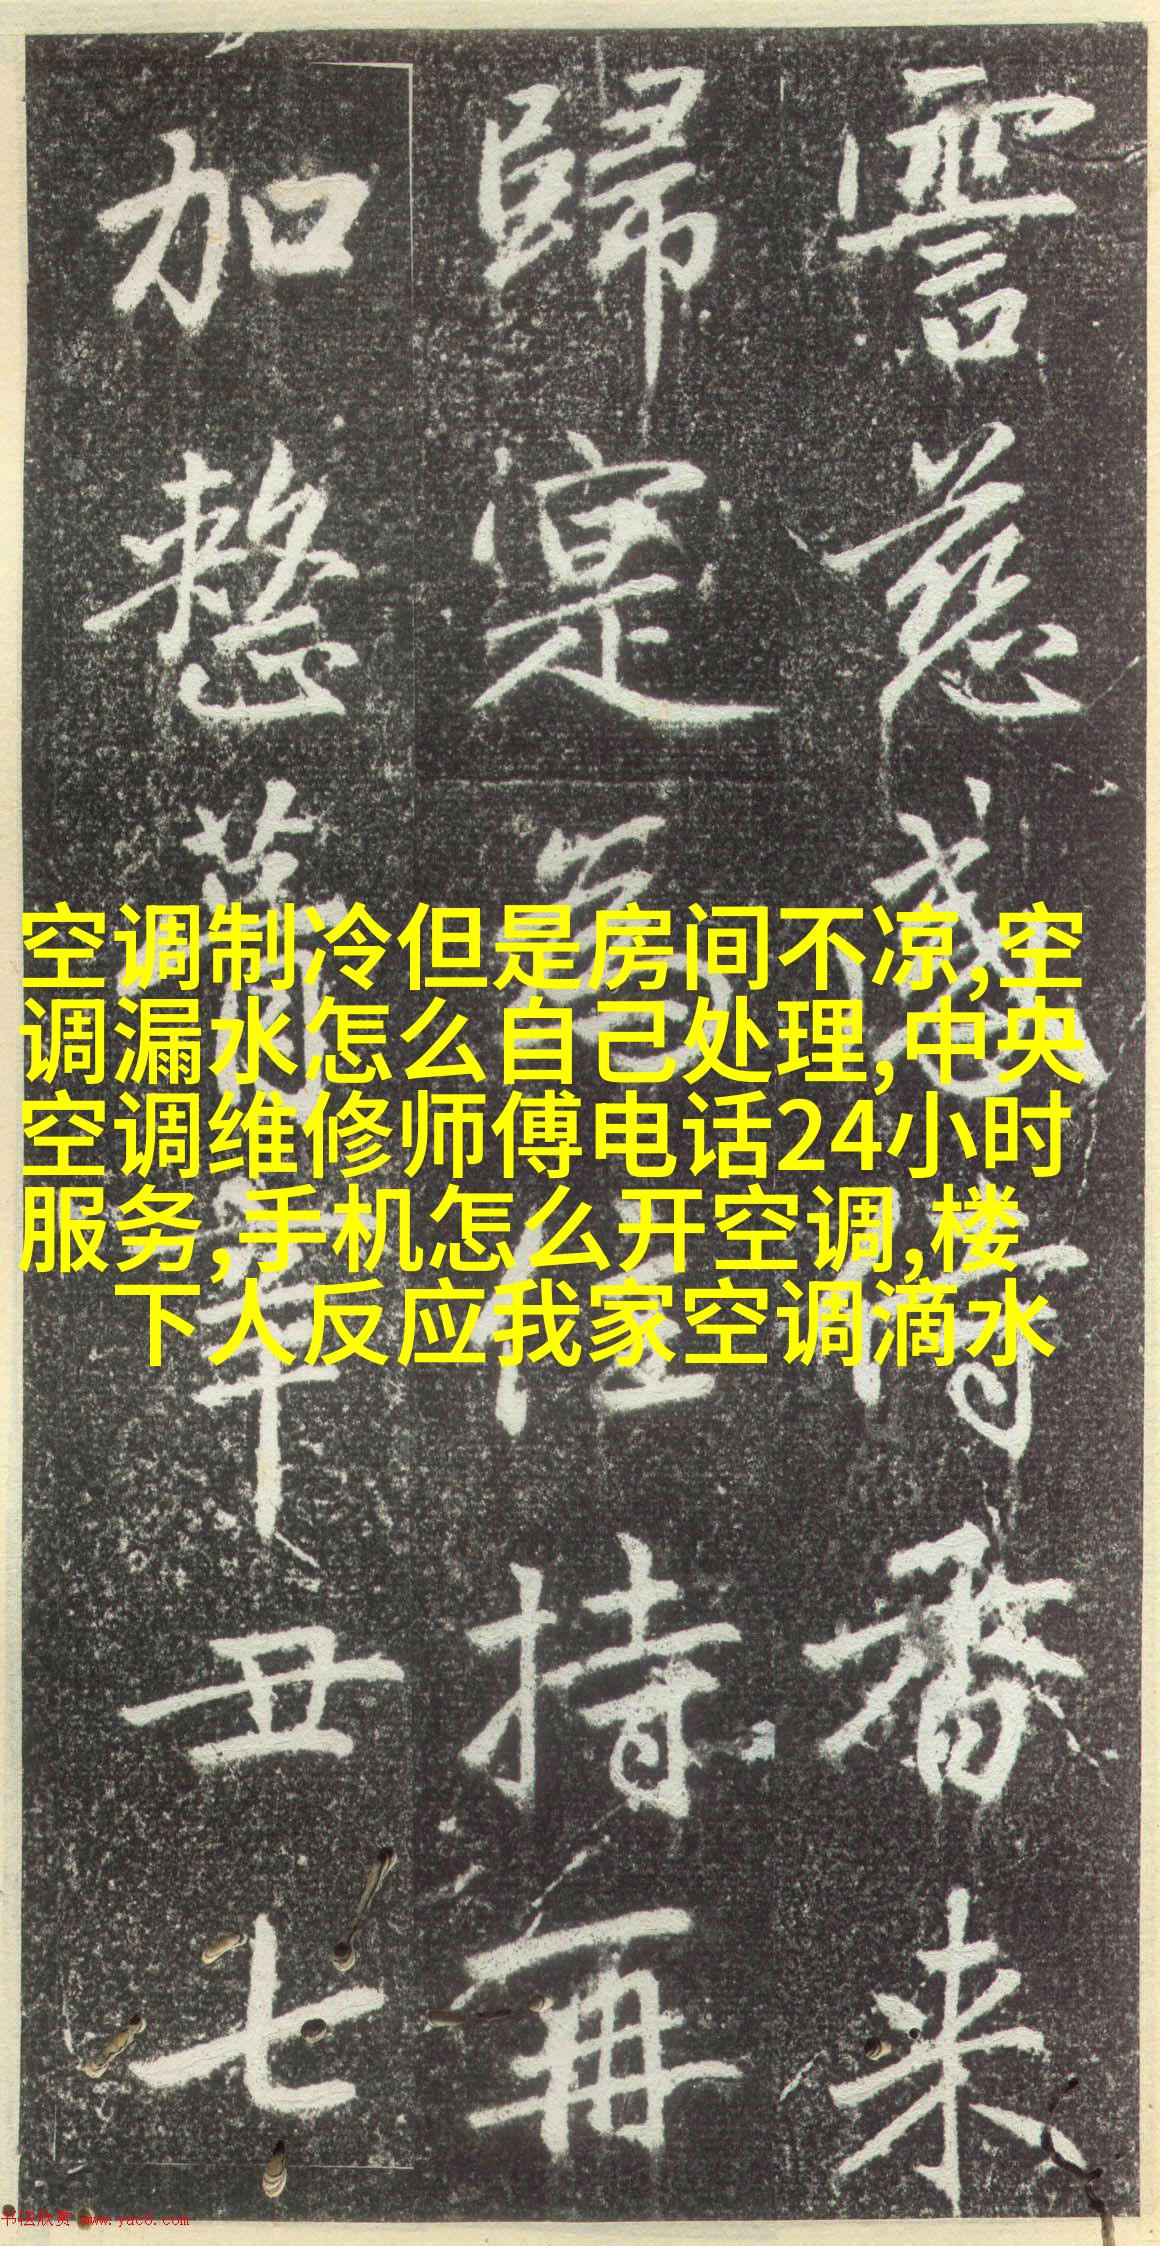 空调制冷但是房间不凉,空
调漏水怎么自己处理,中央
空调维修师傅电话24小时
服务,手机怎么开空调,楼
下人反应我家空调滴水
慈
番来
歸寔
持再
加整
丑七
书法欣赏 www.yac8.com